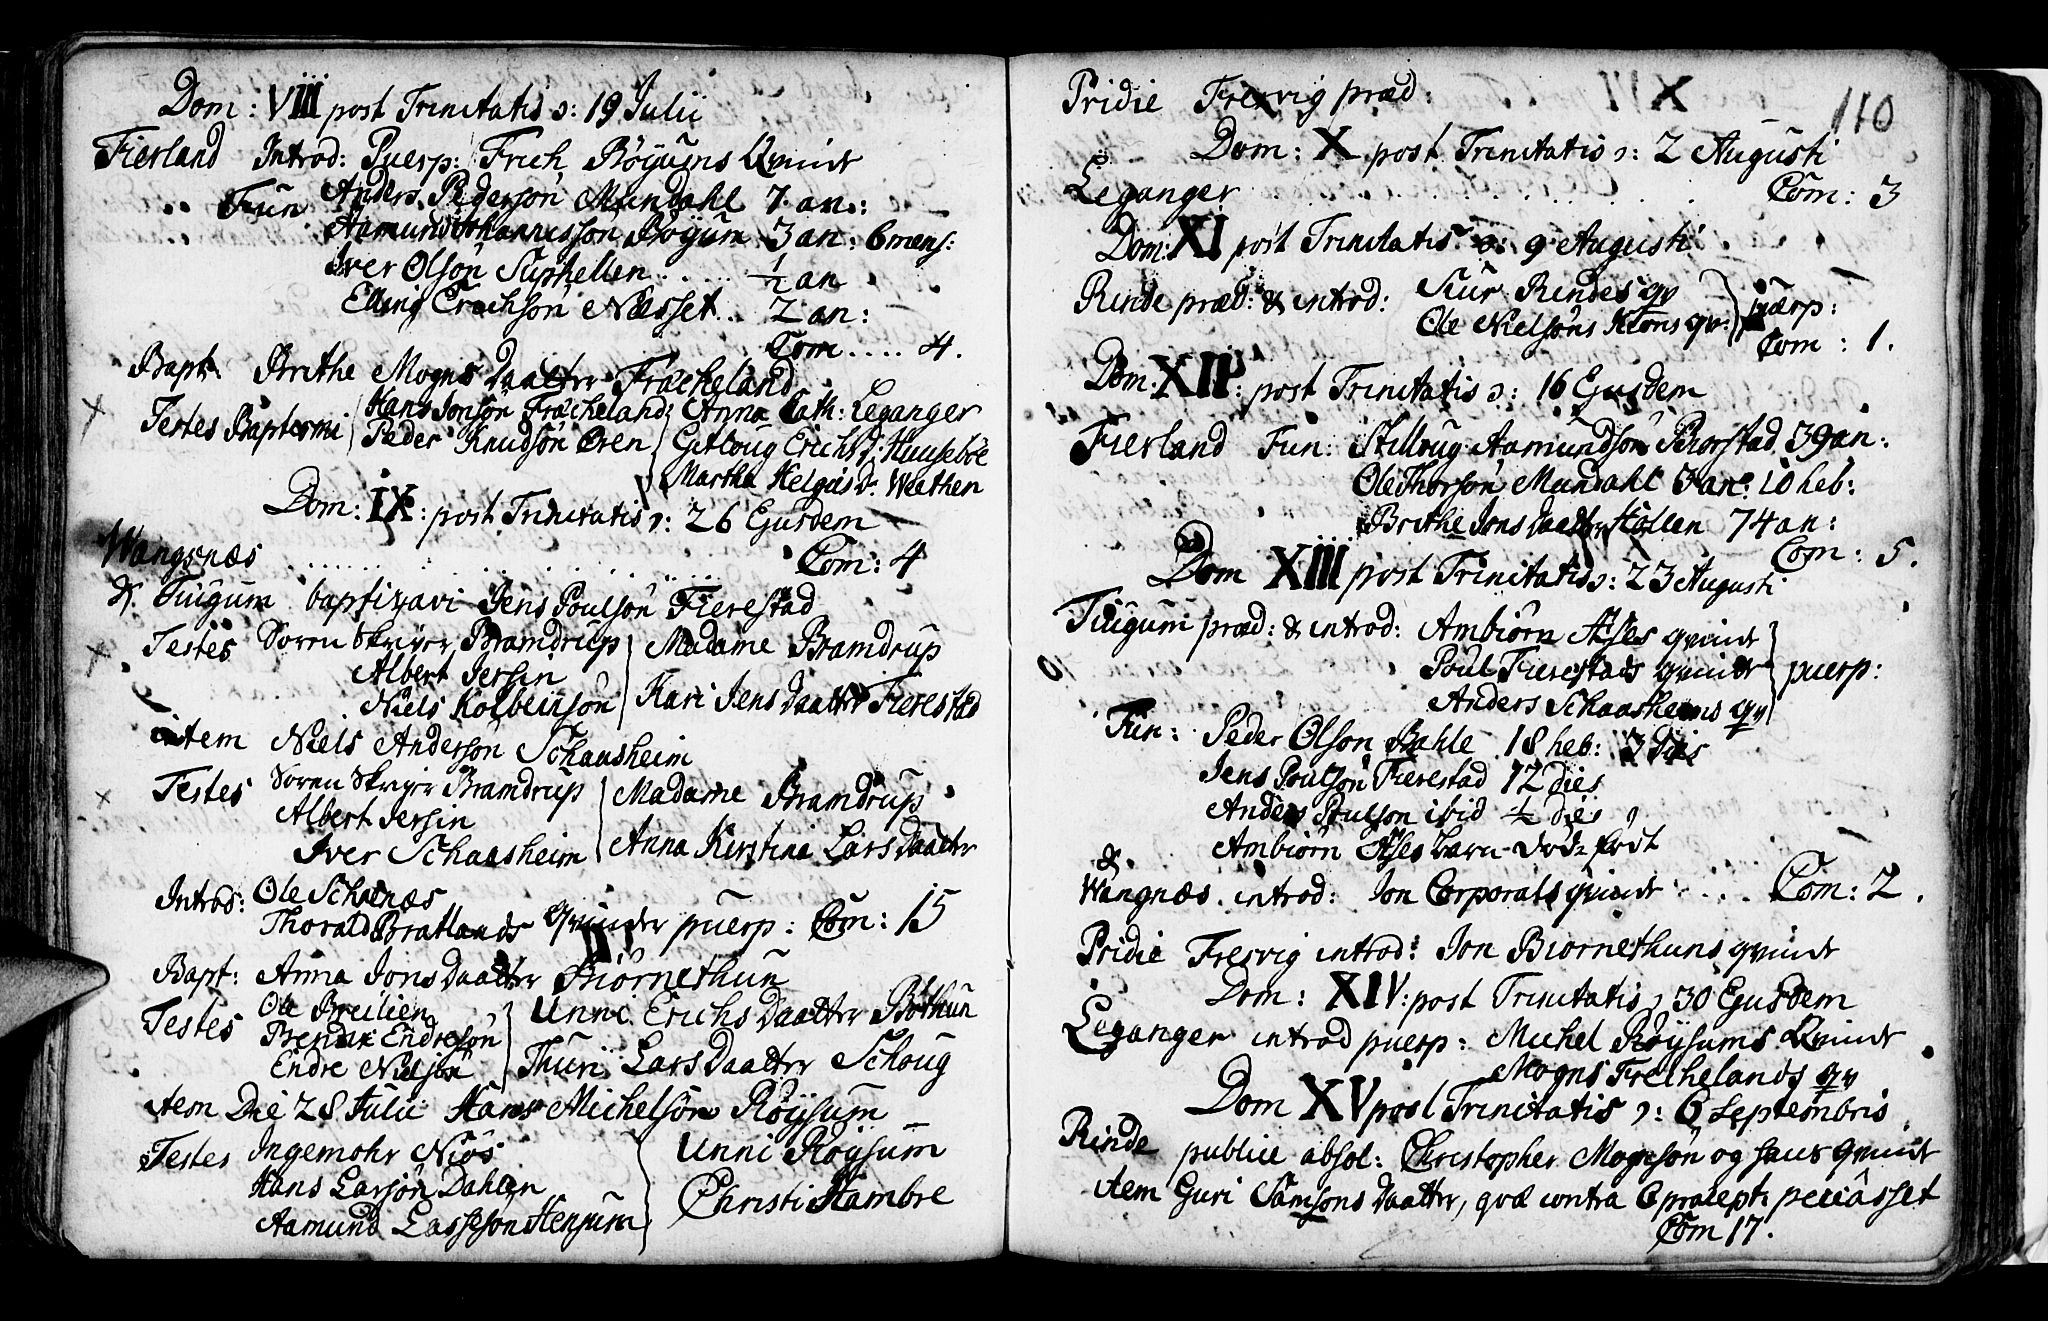 Dom: VIII post Trinitatis ɔ: 19 Julii
Fierland Introd: Puerp: Frich Röysums Qvindr
Fun Anders Pederson Mundahl 7 an:
Aamund Johannesson Böyum 3 an: 6 mens:
Iver Olsön Suphellen . . . . . ½ an
Elling Erichsön Næsset . . 2 an:
Com . . . . 4.
Bapt: Brithe Mogns Daatter Fræcheland
Testes Baptismi Hans Jonsön Fræcheland Anna Cath: Leganger
Peder Knudsön Øren Gitloug Erichsd: Huuseböe
Martha Helgeis Dr. Weethen
Dom: IX: post Trinitatis ɔ: 26 Ejusdem
Wangsnæs . . . . . . Com: 4
& Tiugum baptizavi Jens Poulsön Fierestad
Testes Sören Skriver Bramdrup Madame Bramdrup
Albert Jersin
Niels Kolbeinsön Kari Jens Daatter Fierestad
item Niels Andersön Schaasheim
Testes Sören Skriver Bramdrup Madame Bramdrup
Albert Jersin
Iver Schaasheim Anna Kirstina Lars Daatter
Introd: Ole Schanæs
Thorald Bratlands Qvinder puerp: Com: 15
Bapt: Anna Jons Daatter Biörnethun
Testes Ole Breilien Unni Erichs Daatter Böthun
Bendix Endresön
Endre Nielsön Thuri Lars Daatter Schoug
item Die 28 Julii Hans Michelsön Röysum
Testes Ingemohr Niös Unni Röysum
Hans Larsön Dahlen
Aamund Lassesön Henjum Christi Hambre
110
Pridie Fresvig præd:
Dom: X post Trinitatis ɔ: 2 Augusti
Leganger . . . . . . Com: 3
Dom: XI post Trinitatis ɔ: 9 Augusti
Rinde præd: & introd: Siur Rindes qv
Ole Nielsöns qv: puerp:
Com: 1.
Dom: XII: post Trinitatis ɔ: 16 Ejusdem
Fierland Fun: Stillaug Aamundsön Biorstad 39 an:
Ole Thorsön Mundahl 3 an: 10 heb:
Brithe Jons Daatter 74 an:
Com: 5.
Dom XIII post Trinitatis ɔ: 23 Augusti
Tiugum præd: & introd: Ambiörn Ases qvindr
Poul Fierestads qvindr puerp:
Anders Schaasheims qv
Fun: Peder Olson Bahle 18 heb: 3 dies
Jens Poulsön Fierestad 12 dies
Anders Poulson ibid ½ dies
Ambiörn Ases barn död-föd
&
Wangnæs introd: Jon Corporals qvindr . . . . Com: 2.
Pridie Fresvig introd: Jon Biörnethuns qvindr
Dom: XIV: post Trinitatis ɔ 30 Ejusdem
Leganger introd puerp: Michel Röysums Qvindr
Mogns Frechelands qv
Dom XV post Trinitatis ɔ: 6 Septembris
Rinde publice absol: Christopher Mognsön og hans qvindr
item Guri Samsons Daatter, qvæ contra 6 præcept: peccasset
Com 17.